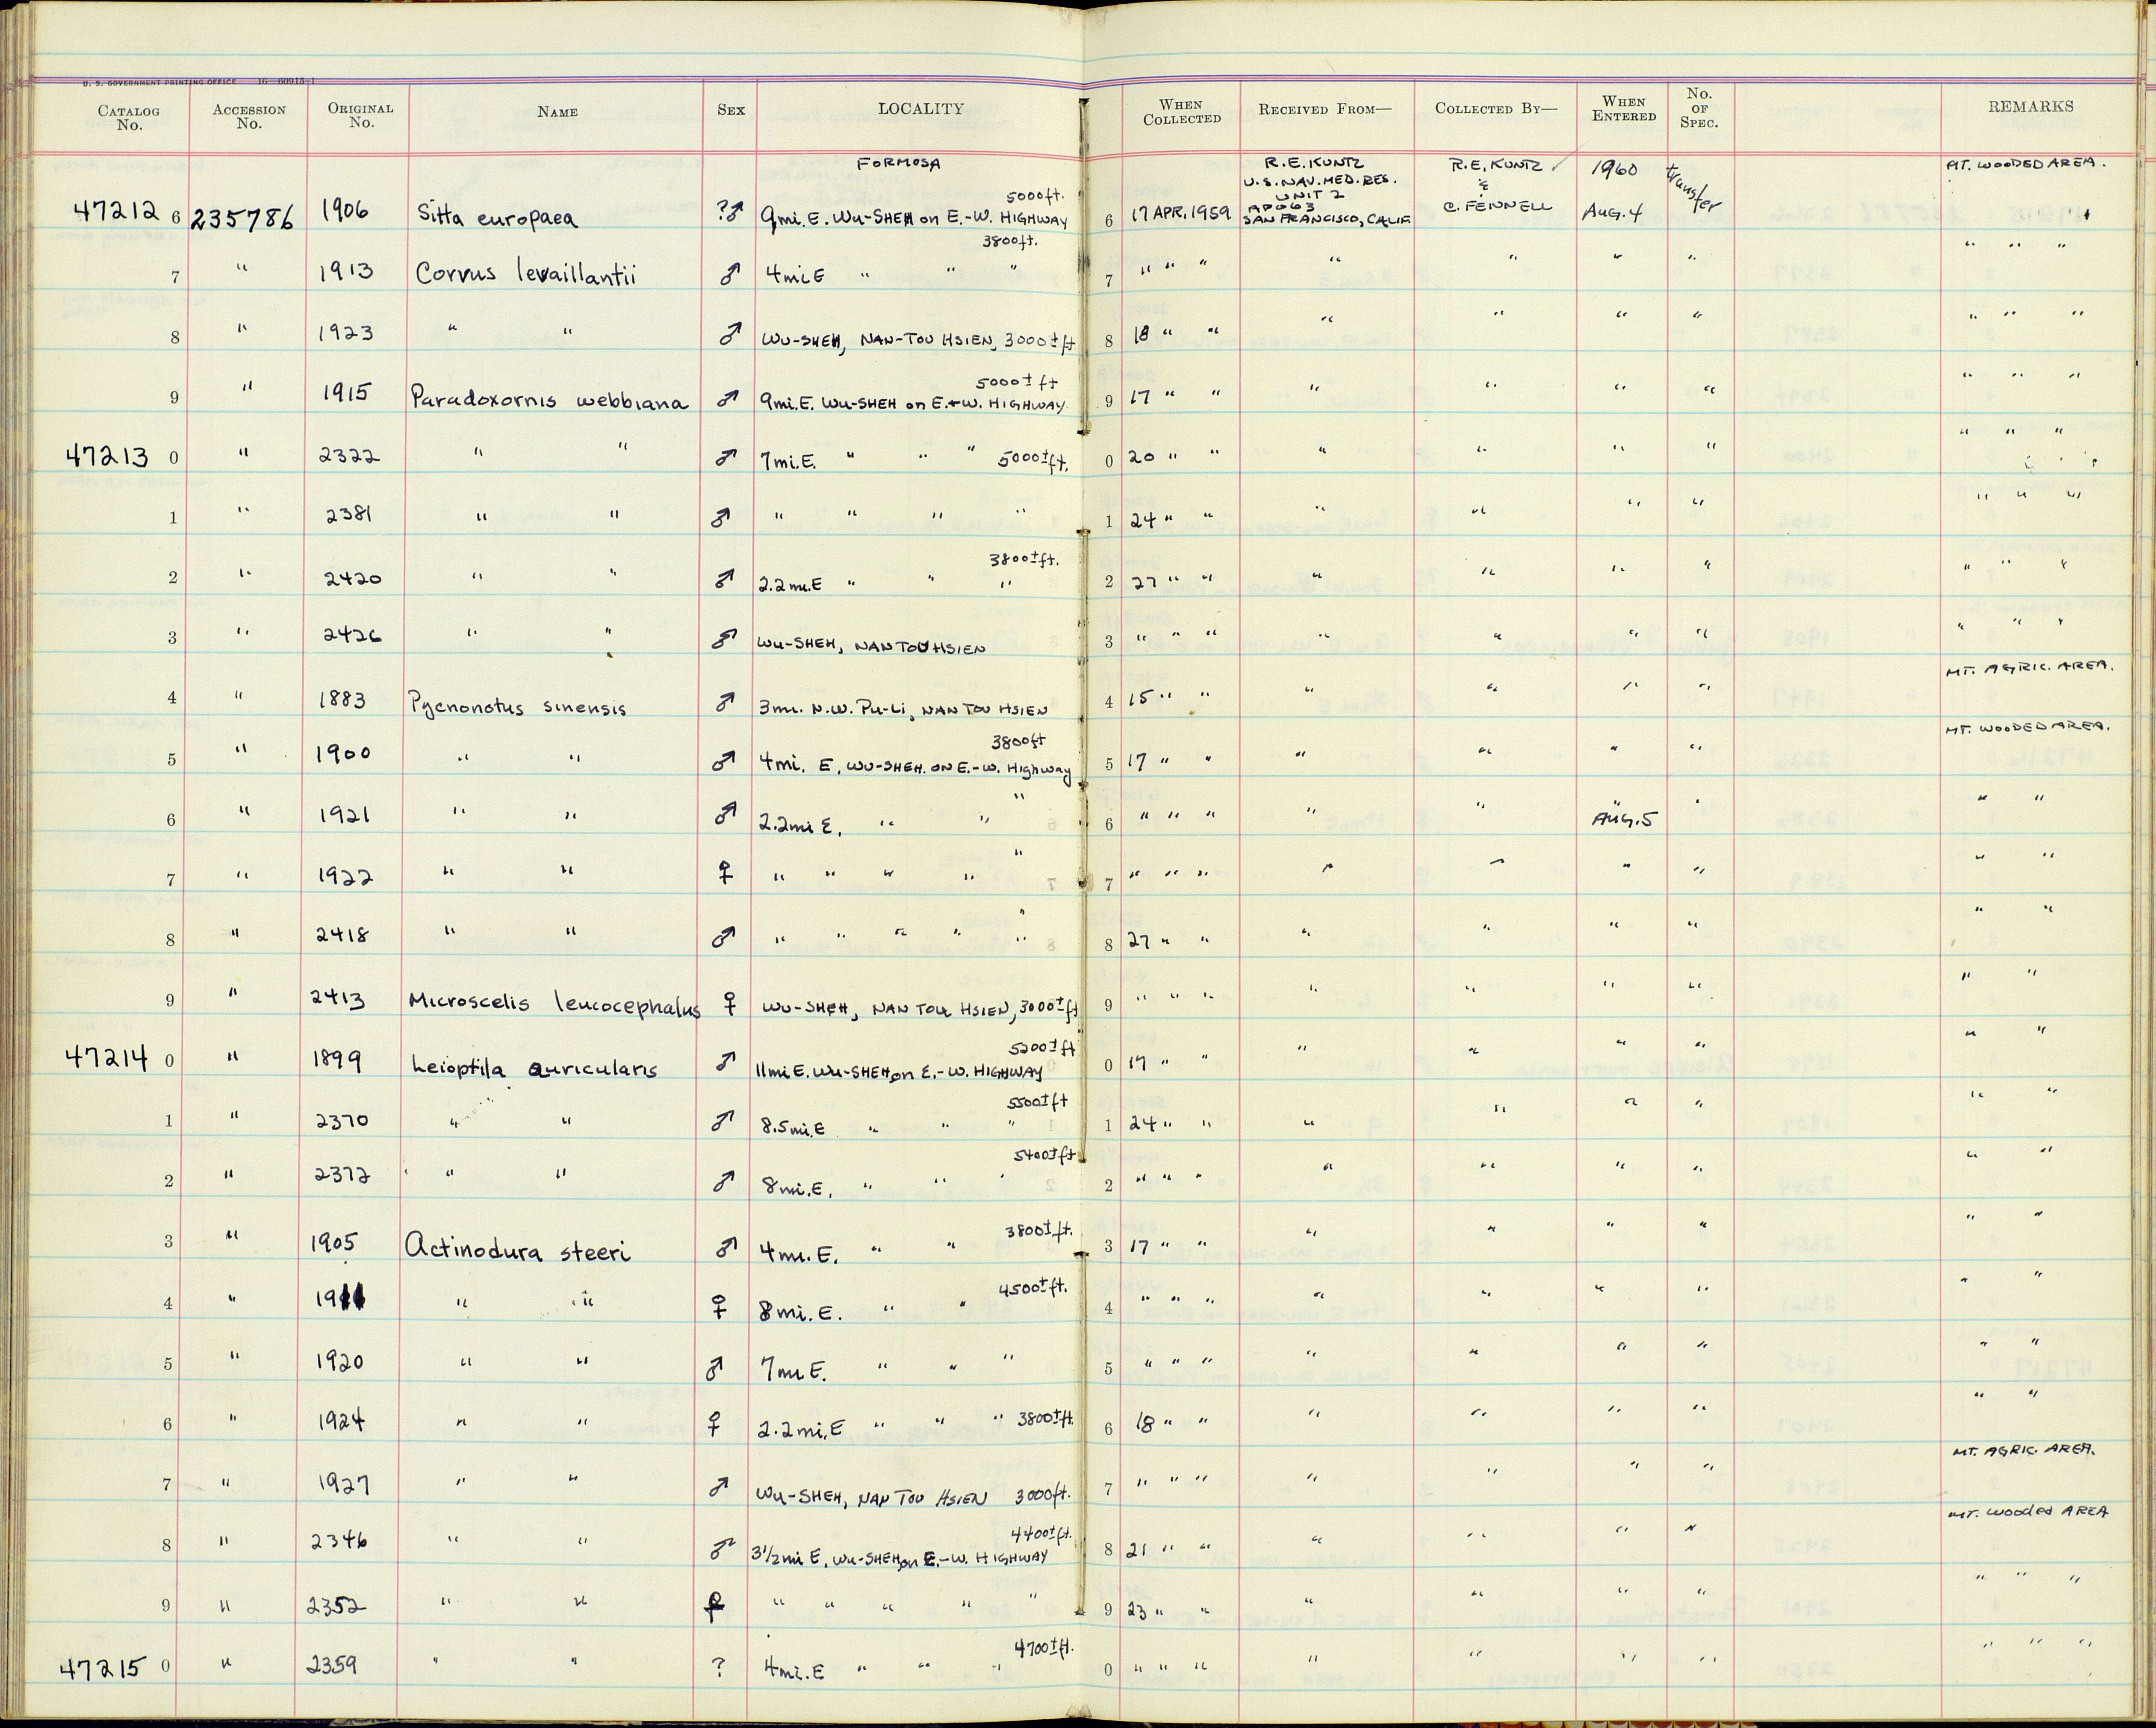 U. S. GOVERNMENT PRINTING OFFICE 16—60915-1
CATALOG No. ACCESSION No. ORIGINAL No. NAME SEX LOCALITY WHEN COLLECTED RECEIVED FROM— COLLECTED BY— WHEN ENTERED No. OF SPEC. REMARKS
FORMOSA R.E. KUNTZ U.S. NAV. MED. RES. UNIT 2 APO 63 SAN FRANCISCO, CALIF. R.E. KUNTZ & C. FENNELL 1960 transfer MT. WOODED AREA.
47212 6 235786 1906 Sitta europaea ?♂ 9mi. E. WU-SHEH on E.-W. HIGHWAY 5000ft. 6 17 APR. 1959 AUG. 4
7 " 1913 Corvus levaillantii ♂ 4mi E " " " 3800ft. 7 " " " " " " " " " "
8 " 1923 " " ♂ WU-SHEH, NAN-TOU HSIEN, 3000± ft 8 18 " " " " " " " " "
9 " 1915 Paradoxornis webbiana ♂ 9mi. E. WU-SHEH on E.-W. HIGHWAY 5000± ft 9 17 " " " " " " " " "
47213 0 " 2322 " " ♂ 7mi. E. " " " 5000± ft. 0 20 " " " " " " " " "
1 " 2381 " " ♂ " " " " 1 24 " " " " " " " " "
2 " 2420 " " ♂ 2.2 mi. E " " " 3800± ft. 2 27 " " " " " " " " "
3 " 2426 " " ♂ WU-SHEH, NAN TOU HSIEN 3 " " " " " " " " " "
4 " 1883 Pycnonotus sinensis ♂ 3mi. N.W. PU-LI, NAN TOU HSIEN 4 15 " " " " " " MT. AGRIC. AREA.
5 " 1900 " " ♂ 4mi. E. WU-SHEH. ON E.-W. Highway 3800ft 5 17 " " " " " " MT. WOODED AREA.
6 " 1921 " " ♂ 2.2mi E. " " " 6 " " " " " " AUG. 5 " " "
7 " 1922 " " ♀ " " " " " 7 " " " " " " " " "
8 " 2418 " " ♂ " " " " " " 8 27 " " " " " " " "
9 " 2413 Microscelis leucocephalus ♀ WU-SHEH, NAN TOU HSIEN, 3000± ft 9 " " " " " " " " "
47214 0 " 1899 Leioptila auricularis ♂ 11mi E. WU-SHEH on E.-W. HIGHWAY 5200± ft 0 17 " " " " " " " "
1 " 2370 " " ♂ 8.5 mi. E " " " 5500± ft 1 24 " " " " " " " "
2 " 2372 " " ♂ 8mi. E. " " " 5400± ft 2 " " " " " " " " "
3 " 1905 Actinodura steeri ♂ 4mi. E. " " 3800± ft. 3 17 " " " " " " " "
4 " " " ♀ 8mi. E. " " 4500± ft. 4 " " " " " " " " "
5 " 1920 " " ♂ 7mi E. " " " 5 " " " " " " " " "
6 " 1924 " " ♀ 2.2mi. E " " " 3800± ft. 6 18 " " " " " " " "
7 " 1927 " " ♂ WU-SHEH, NAN TOU HSIEN 3000ft. 7 " " " " " " " MT. AGRIC. AREA.
8 " 2346 " " ♂ 3 1/2 mi E. WU-SHEH on E.-W. HIGHWAY 4400± ft. 8 21 " " " " " " MT. Wooded AREA
9 " 2352 " " ♀ " " " " " 9 23 " " " " " " " " "
47215 0 " 2359 " " ? 4mi. E " " " 4700± ft. 0 " " " " " " " " " "